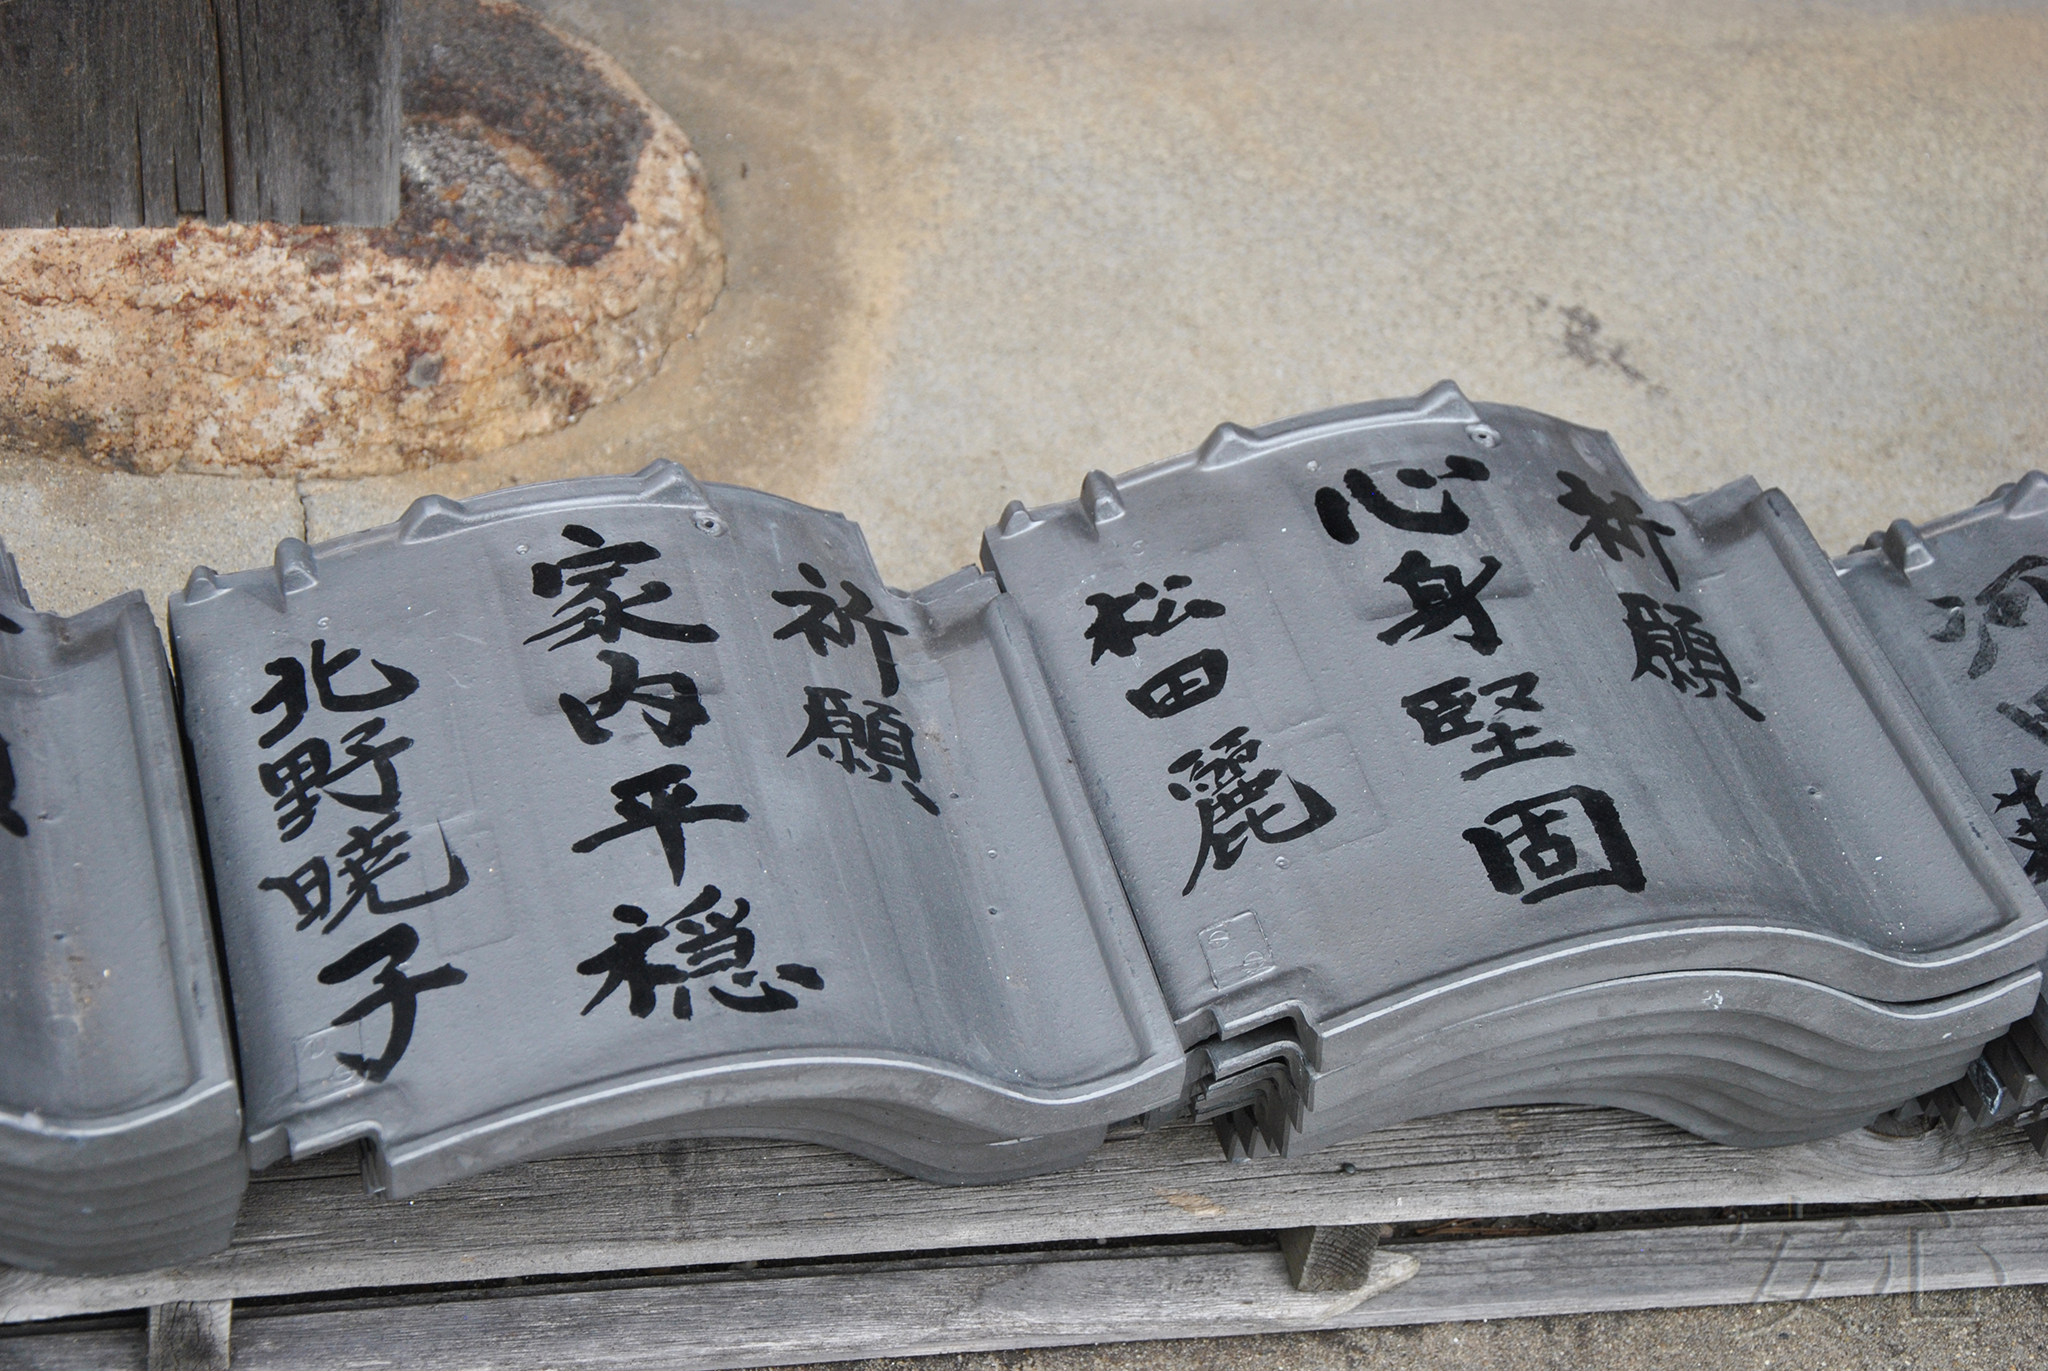 祈願
心身堅固
松田麗
祈願
家内平穏
北野暁子